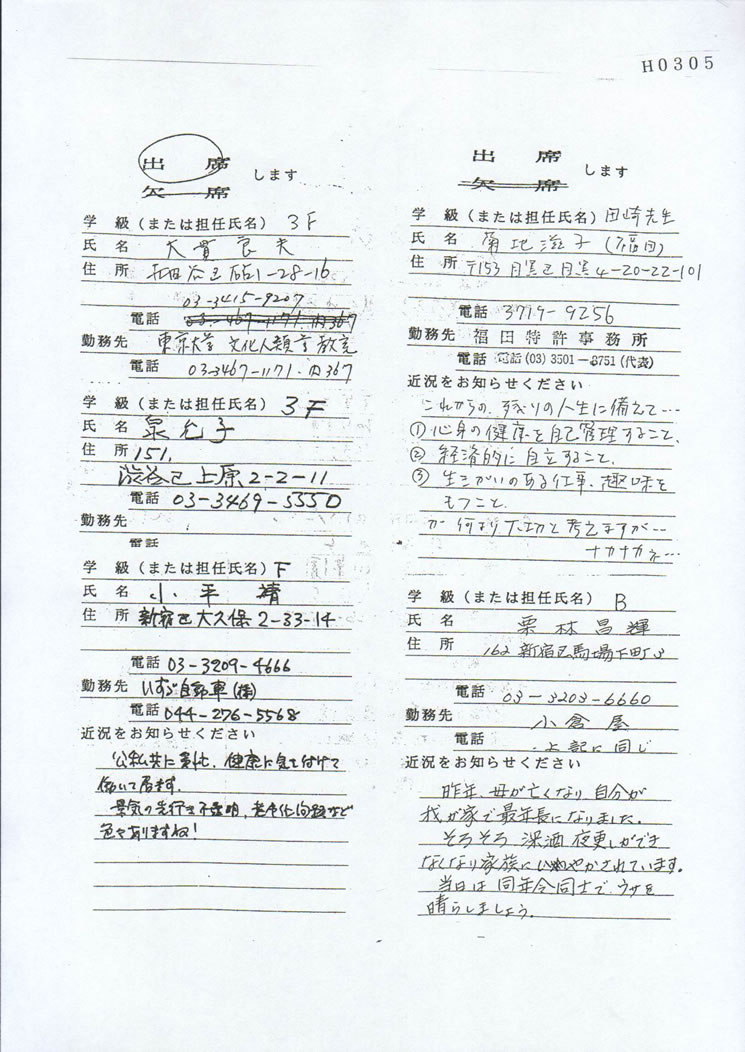 H0305
出席
欠席
します
学級(または担任氏名) 3F
氏名 大貫良夫
住所 世田谷区砧1-28-16
03-3415-9207
電話 03-467-1171.内367
勤務先 東京大学 文化人類学教室
電話 03-3467-1171.内367
学級(または担任氏名) 3F
氏名 泉允子
住所 151.
渋谷区上原2-2-11
電話 03-3469-5550
勤務先
電話
学級(または担任氏名) F
氏名 小平靖
住所 新宿区大久保2-33-14
電話 03-3209-4666
勤務先 いすゞ自動車(株)
電話 044-276-5568
近況をお知らせください
公私共に多忙、健康に気を付けて
働いて居ます.
景気の先行き不透明、老令化問題など
色々ありますね!
出席
欠席
します
学級(または担任氏名) 田崎先生
氏名 菊地滋子(福田)
住所 〒153 目黒区目黒4-20-22-101
電話 3719-9256
勤務先 福田特許事務所
電話 電話(03)3501-8751(代表)
近況をお知らせください
これからの、残りの人生に備えて…
①心身の健康を自己管理すること、
② 経済的に自立すること、
③ 生きがいのある仕事、趣味を
もつこと、
が何より大切と考えますが…
ナカナカネ…
学級(または担任氏名) B
氏名 栗林昌輝
住所 162 新宿区馬場下町3
電話 03-3203-6660
勤務先 小倉屋
電話 上記に同じ
近況をお知らせください
昨年、母が亡くなり、自分が
我が家で最年長になりました.
そろそろ、深酒、夜更しができ
なくなり家族にいやがられています.
当日は同年令同士で、ウサを
晴らしましょう.